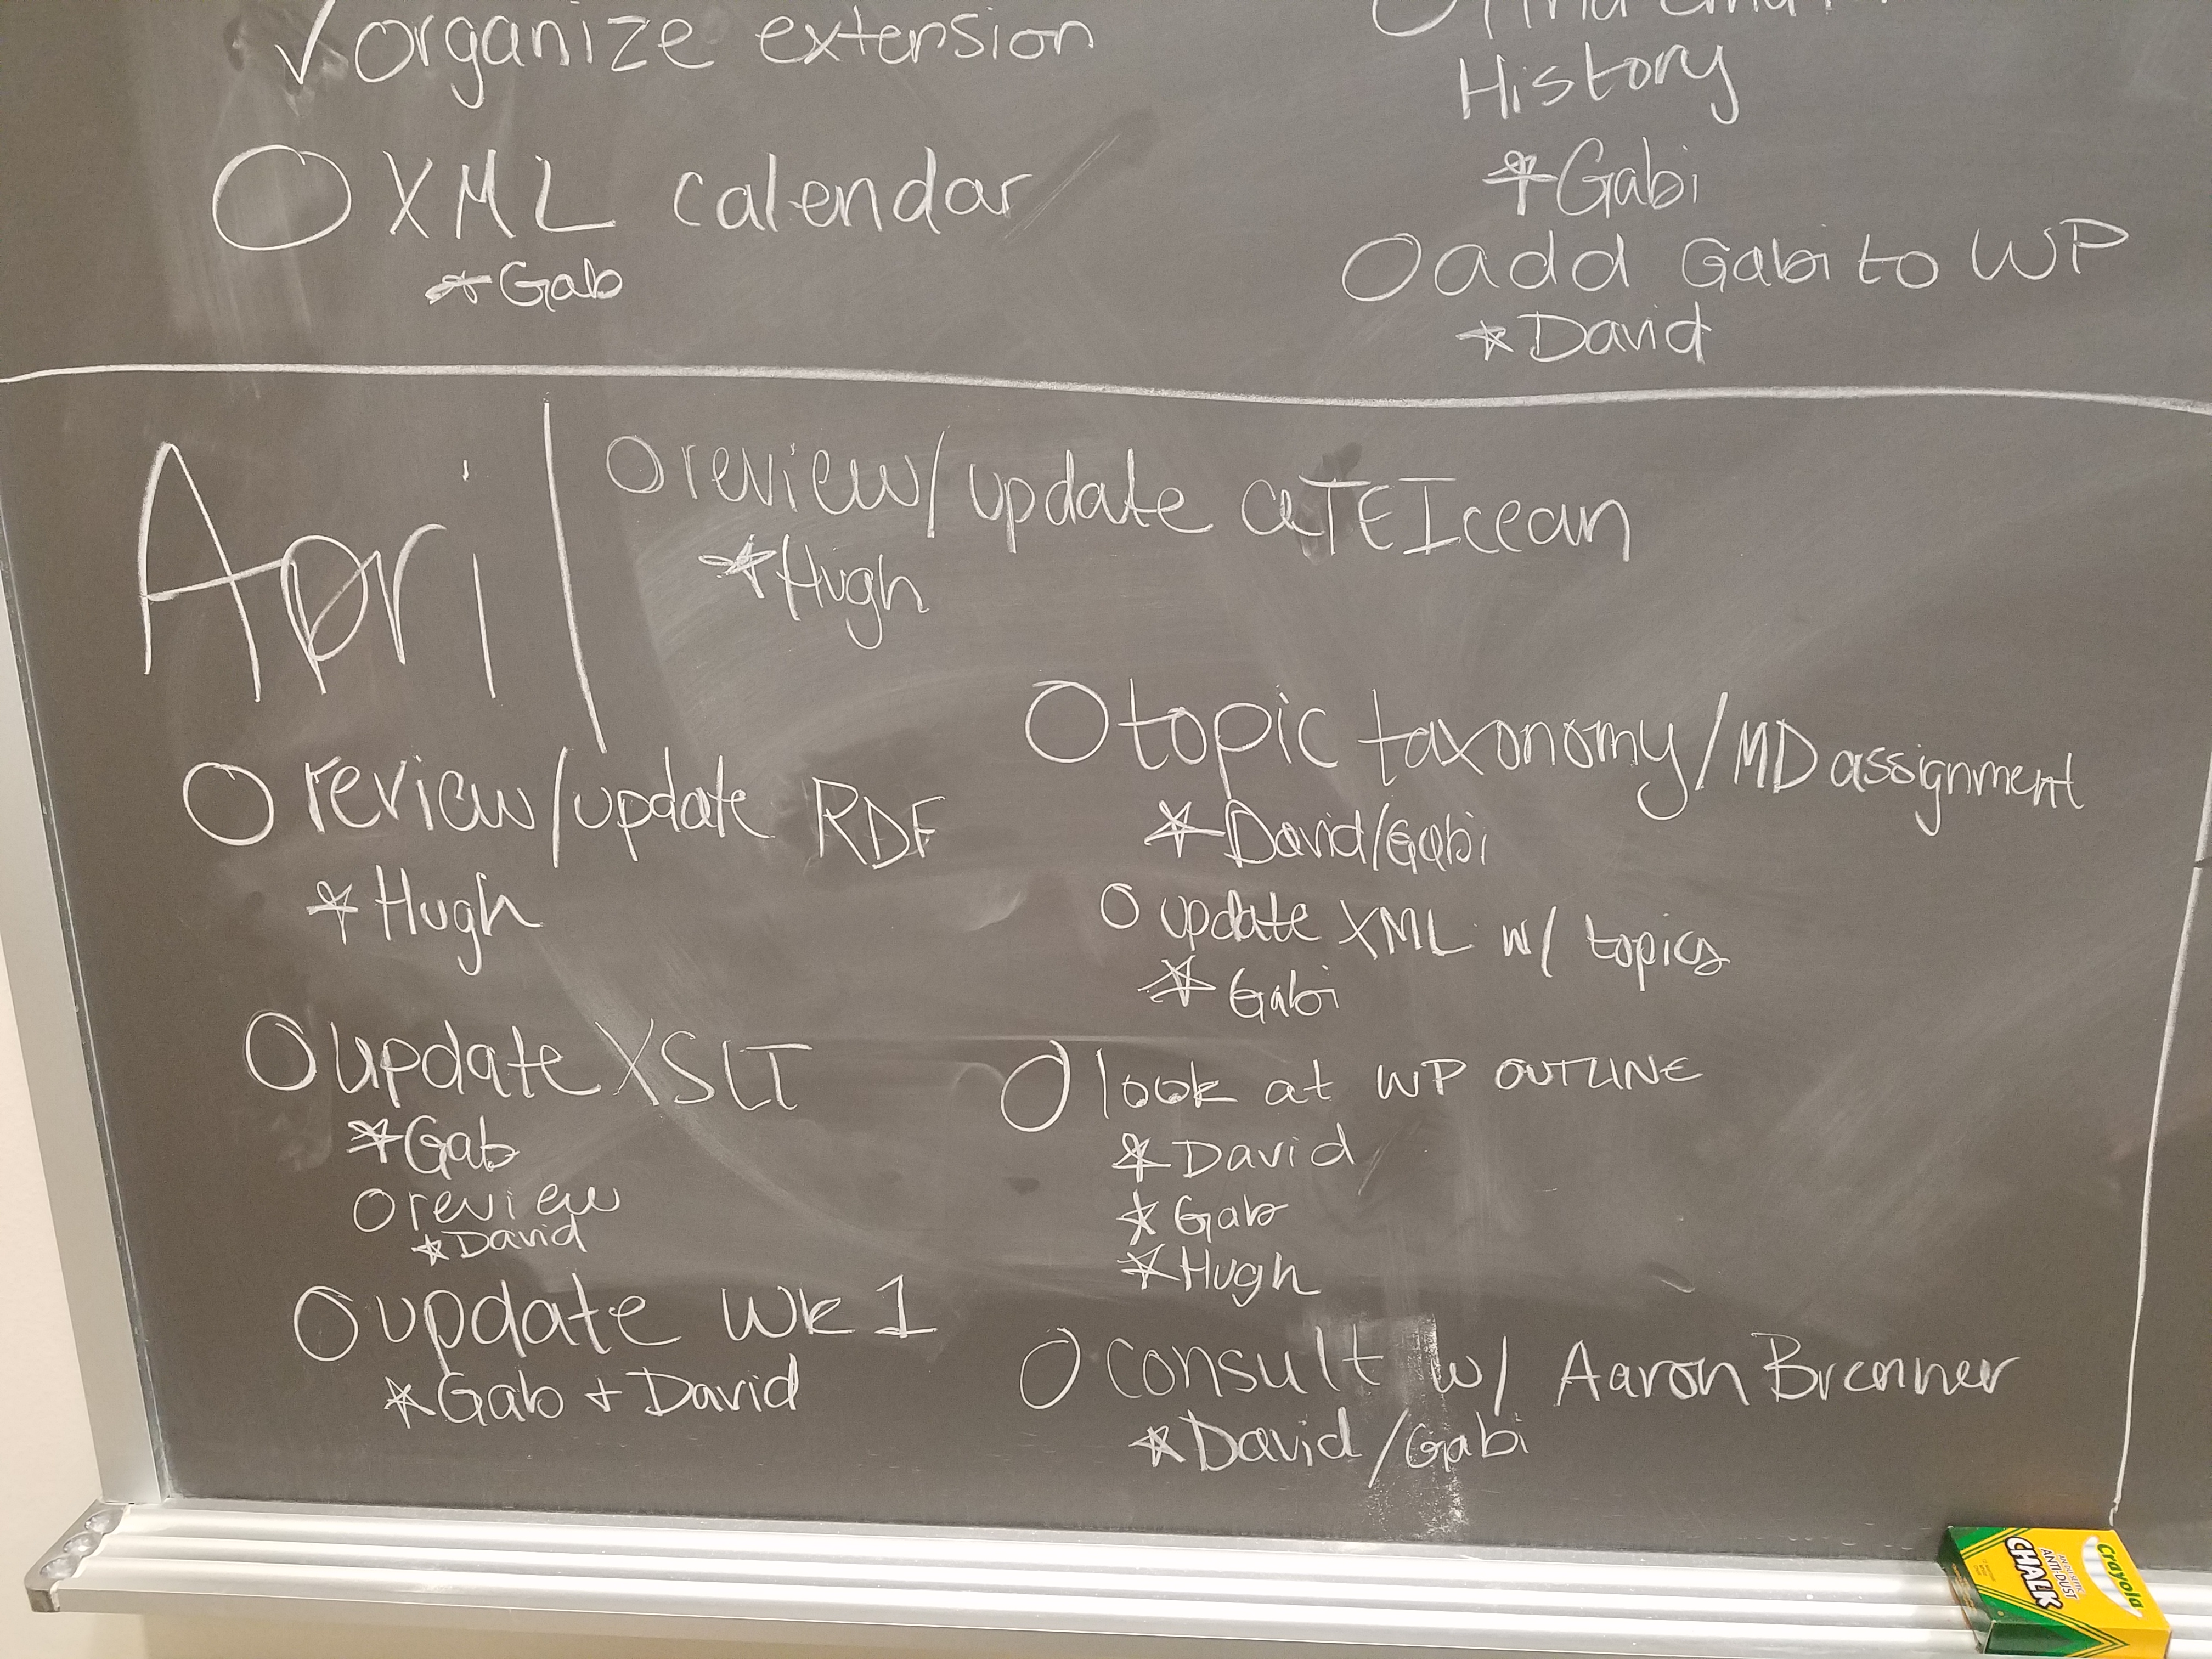 ✓ organize extension
O XML calendar
* Gab
History
* Gabi
O add Gabi to WP
* David
April
O review/update CETEIcean
* Hugh
O review/update RDF
* Hugh
O update XSLT
* Gab
O review
* David
O update wk 1
* Gab + David
O topic taxonomy/MD assignment
* David/Gabi
O update XML w/ topics
* Gabi
O look at WP OUTLINE
* David
* Gab
* Hugh
O consult w/ Aaron Brenner
* David/Gabi
Crayola
ANTI-DUST
CHALK